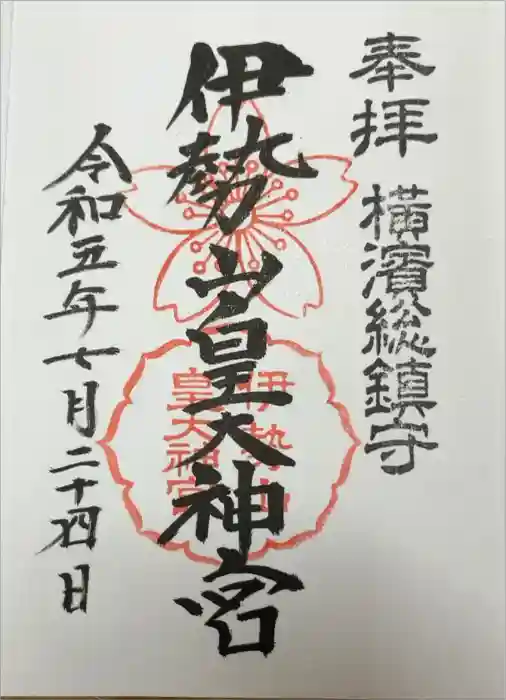 奉拝
横濱総鎮守
伊勢山皇大神宮
伊勢山
皇大神宮
令和五年七月二十四日